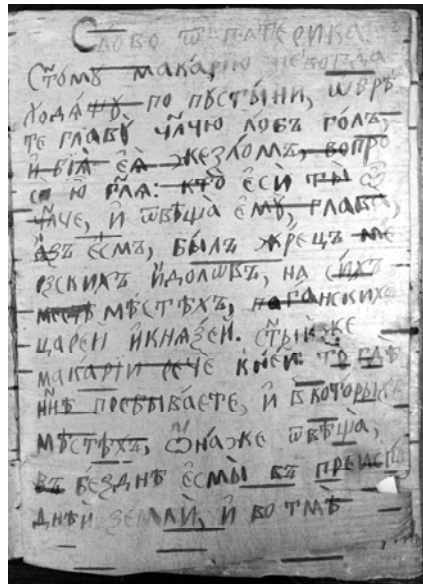 Сло́во ѿ патерика
Ст҃о́мꙋ мака́рию нѣ́когда
ходѧ́щꙋ по пꙋсты́ни, ѡбрѣ́
те главꙋ̀ чл҃чю ло́бъ го́лъ,
и҆ бїѧ̀ ю҆̀ жезло́мъ, вопро
си ю҆̀ гл҃ѧ: кто̀ є҆сѝ ты̀ ѽ
чл҃че, и҆ ѿвѣща̀ є҆мꙋ̀, глава̀,
а҆́зъ є҆́смъ, бы́лъ жре́цъ ме́
рзскихъ и҆́долѡвъ, на си́хъ
мѣ́стѣхъ, пога́нскихъ
царе́й и҆ кнѧзе́й. ст҃ы́й же
мака́рїи речѐ к не́й: то̀ гдѣ̀
нн҃ѣ пребыва́ете, и҆ в которыхъ
мѣ́стѣхъ, ѻ҆на́ же ѿвѣща̀,
въ бе́зднѣ є҆смы̀ въ преиспо́
днѣй землѝ, и҆ во тмѣ̀